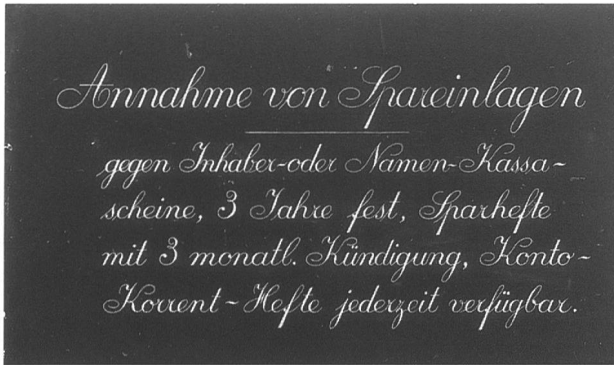 Annahme von Spareinlagen
gegen Inhaber-oder Namen-Kassa-
scheine, 3 Jahre fest, Sparhefte
mit 3 monatl. Kündigung, Konto-
Korrent-Hefte jederzeit verfügbar.